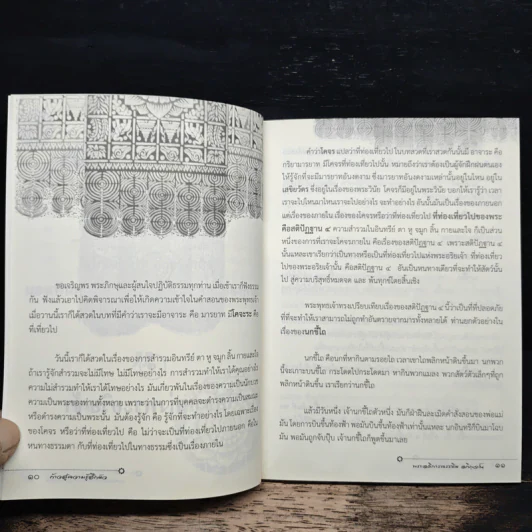 ขอเจริญพร พระภิกษุและผู้สนใจปฏิบัติธรรมทุกท่าน เมื่อเช้าเราก็ฟังธรรม
กัน ฟังแล้วเอาไปคิดพิจารณาเพื่อให้เกิดความเข้าใจในคำสอนของพระพุทธเจ้า
เมื่อวานนี้เราก็ได้สวดในบทที่มีคำว่าเราจะมีอาจาระ คือ มารยาท มีโคจระ คือ
ที่เที่ยวไป
วันนี้เราก็ได้สวดในเรื่องของการสำรวมอินทรีย์ ตา หู จมูก ลิ้น กายและใจ
ถ้าเรารู้จักสำรวมจะไม่มีโทษ ไม่มีโทษอย่างไร การสำรวมทำให้เราได้คุณอย่างไร
ความไม่สำรวมทำให้เราได้โทษอย่างไร มันเกี่ยวพันในเรื่องของความเป็นนักบวช
ความเป็นพระของท่านทั้งหลาย เพราะว่าในการที่บุคคลจะดำรงความเป็นสมณะ
หรือดำรงความเป็นพระนั้น มันต้องรู้จัก คือ รู้จักที่จะทำอย่างไร โดยเฉพาะเรื่อง
ของโคจร หรือว่าที่ท่องเที่ยวไป คือ ไม่ว่าจะเป็นที่ท่องเที่ยวไปภายนอก คือใน
หนทางธรรมดา กับที่ท่องเที่ยวไปในทางธรรมซึ่งเป็นเรื่องภายใน
๑๐
คำว่าโคจร แปลว่าที่ท่องเที่ยวไป ในบทสวดที่เราสวดกันนั้นมี อาจาระ คือ
กริยามารยาท มีโคจรที่ท่องเที่ยวไปนั้น หมายถึงว่าเราต้องเป็นผู้ฝึกฝนตนเอง
ให้รู้จักที่จะมีมารยาทอันงดงาม ซึ่งมารยาทอันงดงามเหล่านั้นอยู่ในไหน อยู่ใน
เสขิยวัตร ซึ่งอยู่ในเรื่องของพระวินัย โคจรก็มีอยู่ในพระวินัย บอกให้เรารู้ว่า เวลา
เราจะไปไหนมาไหนเราจะไปอย่างไร จะทำอย่างไร อันนั้นมันเป็นเรื่องของภายนอก
แต่เรื่องของภายใน เรื่องของโคจรหรือว่าที่ท่องเที่ยวไป ที่ท่องเที่ยวไปของพระ
คือสติปัฏฐาน ๔ ความสำรวมในอินทรีย์ ตา หู จมูก ลิ้น กายและใจ ก็เป็นส่วน
หนึ่งของการที่เราจะโคจรภายใน คือเรื่องของสติปัฏฐาน ๔ เพราะสติปัฏฐาน ๔
นั้นแหละเขาเรียกว่าเป็นทางหรือเป็นที่ท่องเที่ยวไปแห่งพระอริยเจ้า ที่ท่องเที่ยว
ไปของพระอริยเจ้านั้นคือ สติปัฏฐาน ๔ อันเป็นหนทางเดียวที่จะทำให้สัตว์นั้น
ไป สู่ความบริสุทธิ์หมดจด และ พ้นทุกข์โดยสิ้นเชิง
พระพุทธเจ้าทรงเปรียบเทียบเรื่องของสติปัฏฐาน ๔ นี้ว่าเป็นที่ที่ปลอดภัย
ที่ที่จะทำให้เราสามารถไม่ถูกทำอันตรายจากมารทั้งหลายได้ ท่านยกตัวอย่างใน
เรื่องของนกขี้ไถ
นกขี้ไถ คือนกที่หากินตามรอยไถ เวลาเขาไถพลิกหน้าดินขึ้นมา นกพวก
นี้จะเกาะบนขี้ไถ กระโดดไปกระโดดมา หากินพวกแมลง พวกสัตว์ตัวเล็กๆที่ถูก
พลิกหน้าดินขึ้น เราเรียกว่านกขี้ไถ
แล้วมีวันหนึ่ง เจ้านกขี้ไถตัวหนึ่ง มันก็ฝ่าฝืนละเมิดคำสั่งสอนของพ่อแม่
มัน โดยการบินขึ้นท้องฟ้า พอมันบินขึ้นท้องฟ้าเท่านั้นแหละ นกอินทรีก็บินมาโฉบ
มัน พอมันถูกจับปุ๊บ เจ้านกขี้ไถก็พูดขึ้นมาเลย
๑๑